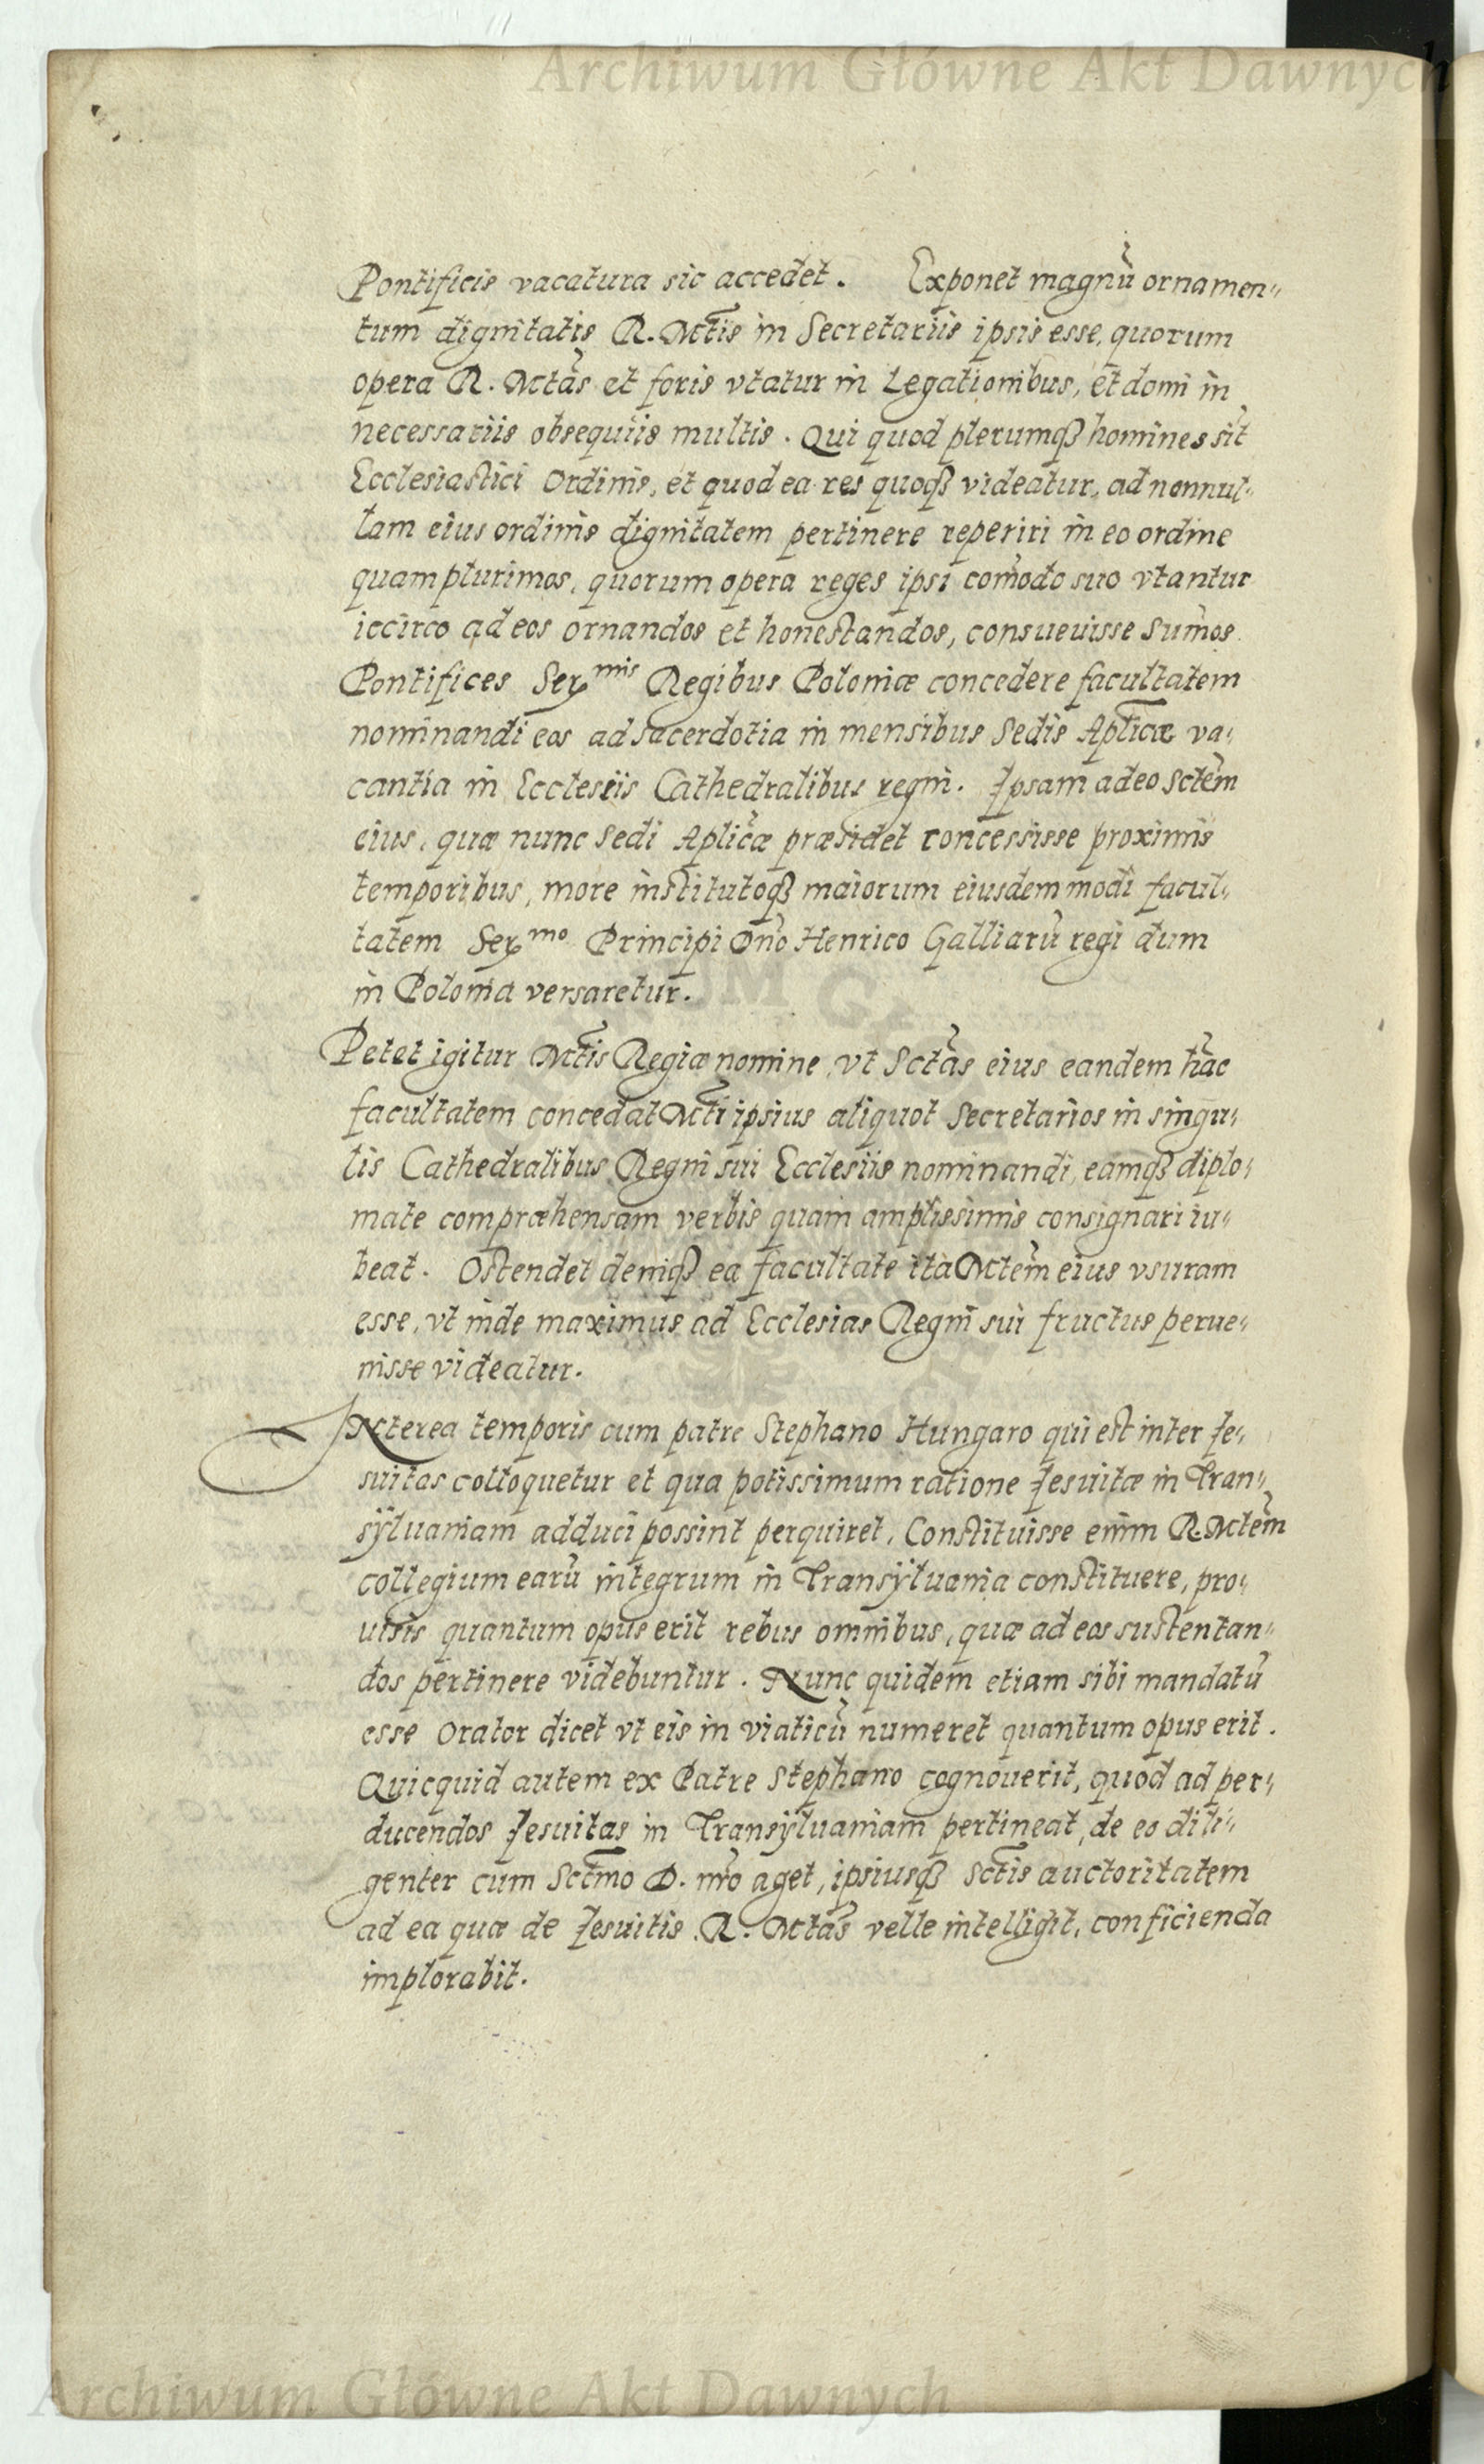 Archiwum Główne Akt Dawnych
Pontificis vacatura sic accedet. Exponet magnũ ornamen„
tum dignitatis R. Mctis̃ in Secretariis ipsis esse, quorum
opera R. Mctas̃ et foris vtatur in Legationibus, et domi in
necessariis obsequiis multis. Qui quod plerumqꝫ homines sit
Ecclesiastici Ordinis, et quod ea res quoqꝫ videatur, ad nonnul„
lam eius ordinis dignitatem pertinere reperiri in eo ordine
quam plurimos, quorum opera reges ipsi com̃odo suo vtantur
iccirco ad eos ornandos et honestandos, consueuisse Sum̃os
Pontifices Serᵐⁱˢ Regibus Poloniæ concedere facultatem
nominandi eos ad sacerdotia in mensibus Sedis Aplicæ̃ va„
cantia in Ecclesiis Cathedralibus regni. Ipsam adeo Sctem̃
eius, quæ nunc Sedi Aplicæ̃ præsidet concessisse proximis
temporibus, more institutoqꝫ maiorum eiusdem modi facul„
tatem Serᵐᵒ Principi Dño Henrico Galliarũ regi dum
in Polonia versaretur.
Petet igitur Mctis̃ Regiæ nomine, vt Sctas̃ eius eandem hãc
facultatem concedat Mctĩ ipsius aliquot Secretarios in singu„
lis Cathedralibus Regni sui Ecclesiis nominandi, eamqꝫ diplo„
mate compræhensam verbis quam amplissimis consignari iu„
beat. Ostendet deniqꝫ ea facultate ita Mctem̃ eius vsuram
esse, vt inde maximus ad Ecclesias Regni sui fructus perue„
nisse videatur.
Interea temporis cum patre Stephano Hungaro qui est inter Ie„
suitas colloquetur et qua potissimum ratione Iesuitæ in Tran„
sÿluaniam adduci possint perquiret, Constituisse enim R. Mctem̃
collegium earũ integrum in Transÿluania constituere, pro„
uisis quantum opus erit rebus omnibus, quæ ad eos sustentan„
dos pertinere videbuntur. Nunc quidem etiam sibi mandatũ
esse Orator dicet vt eis in viaticũ numeret quantum opus erit.
Quicquid autem ex Patre Stephano cognouerit, quod ad per„
ducendos Iesuitas in Transÿluaniam pertineat, de eo dili„
genter cum Sctmõ D. nr̃o aget, ipsiusqꝫ Sctis̃ auctoritatem
ad ea quæ de Iesuitis R. Mctas̃ velle intelligit, conficienda
implorabit.
Archiwum Główne Akt Dawnych